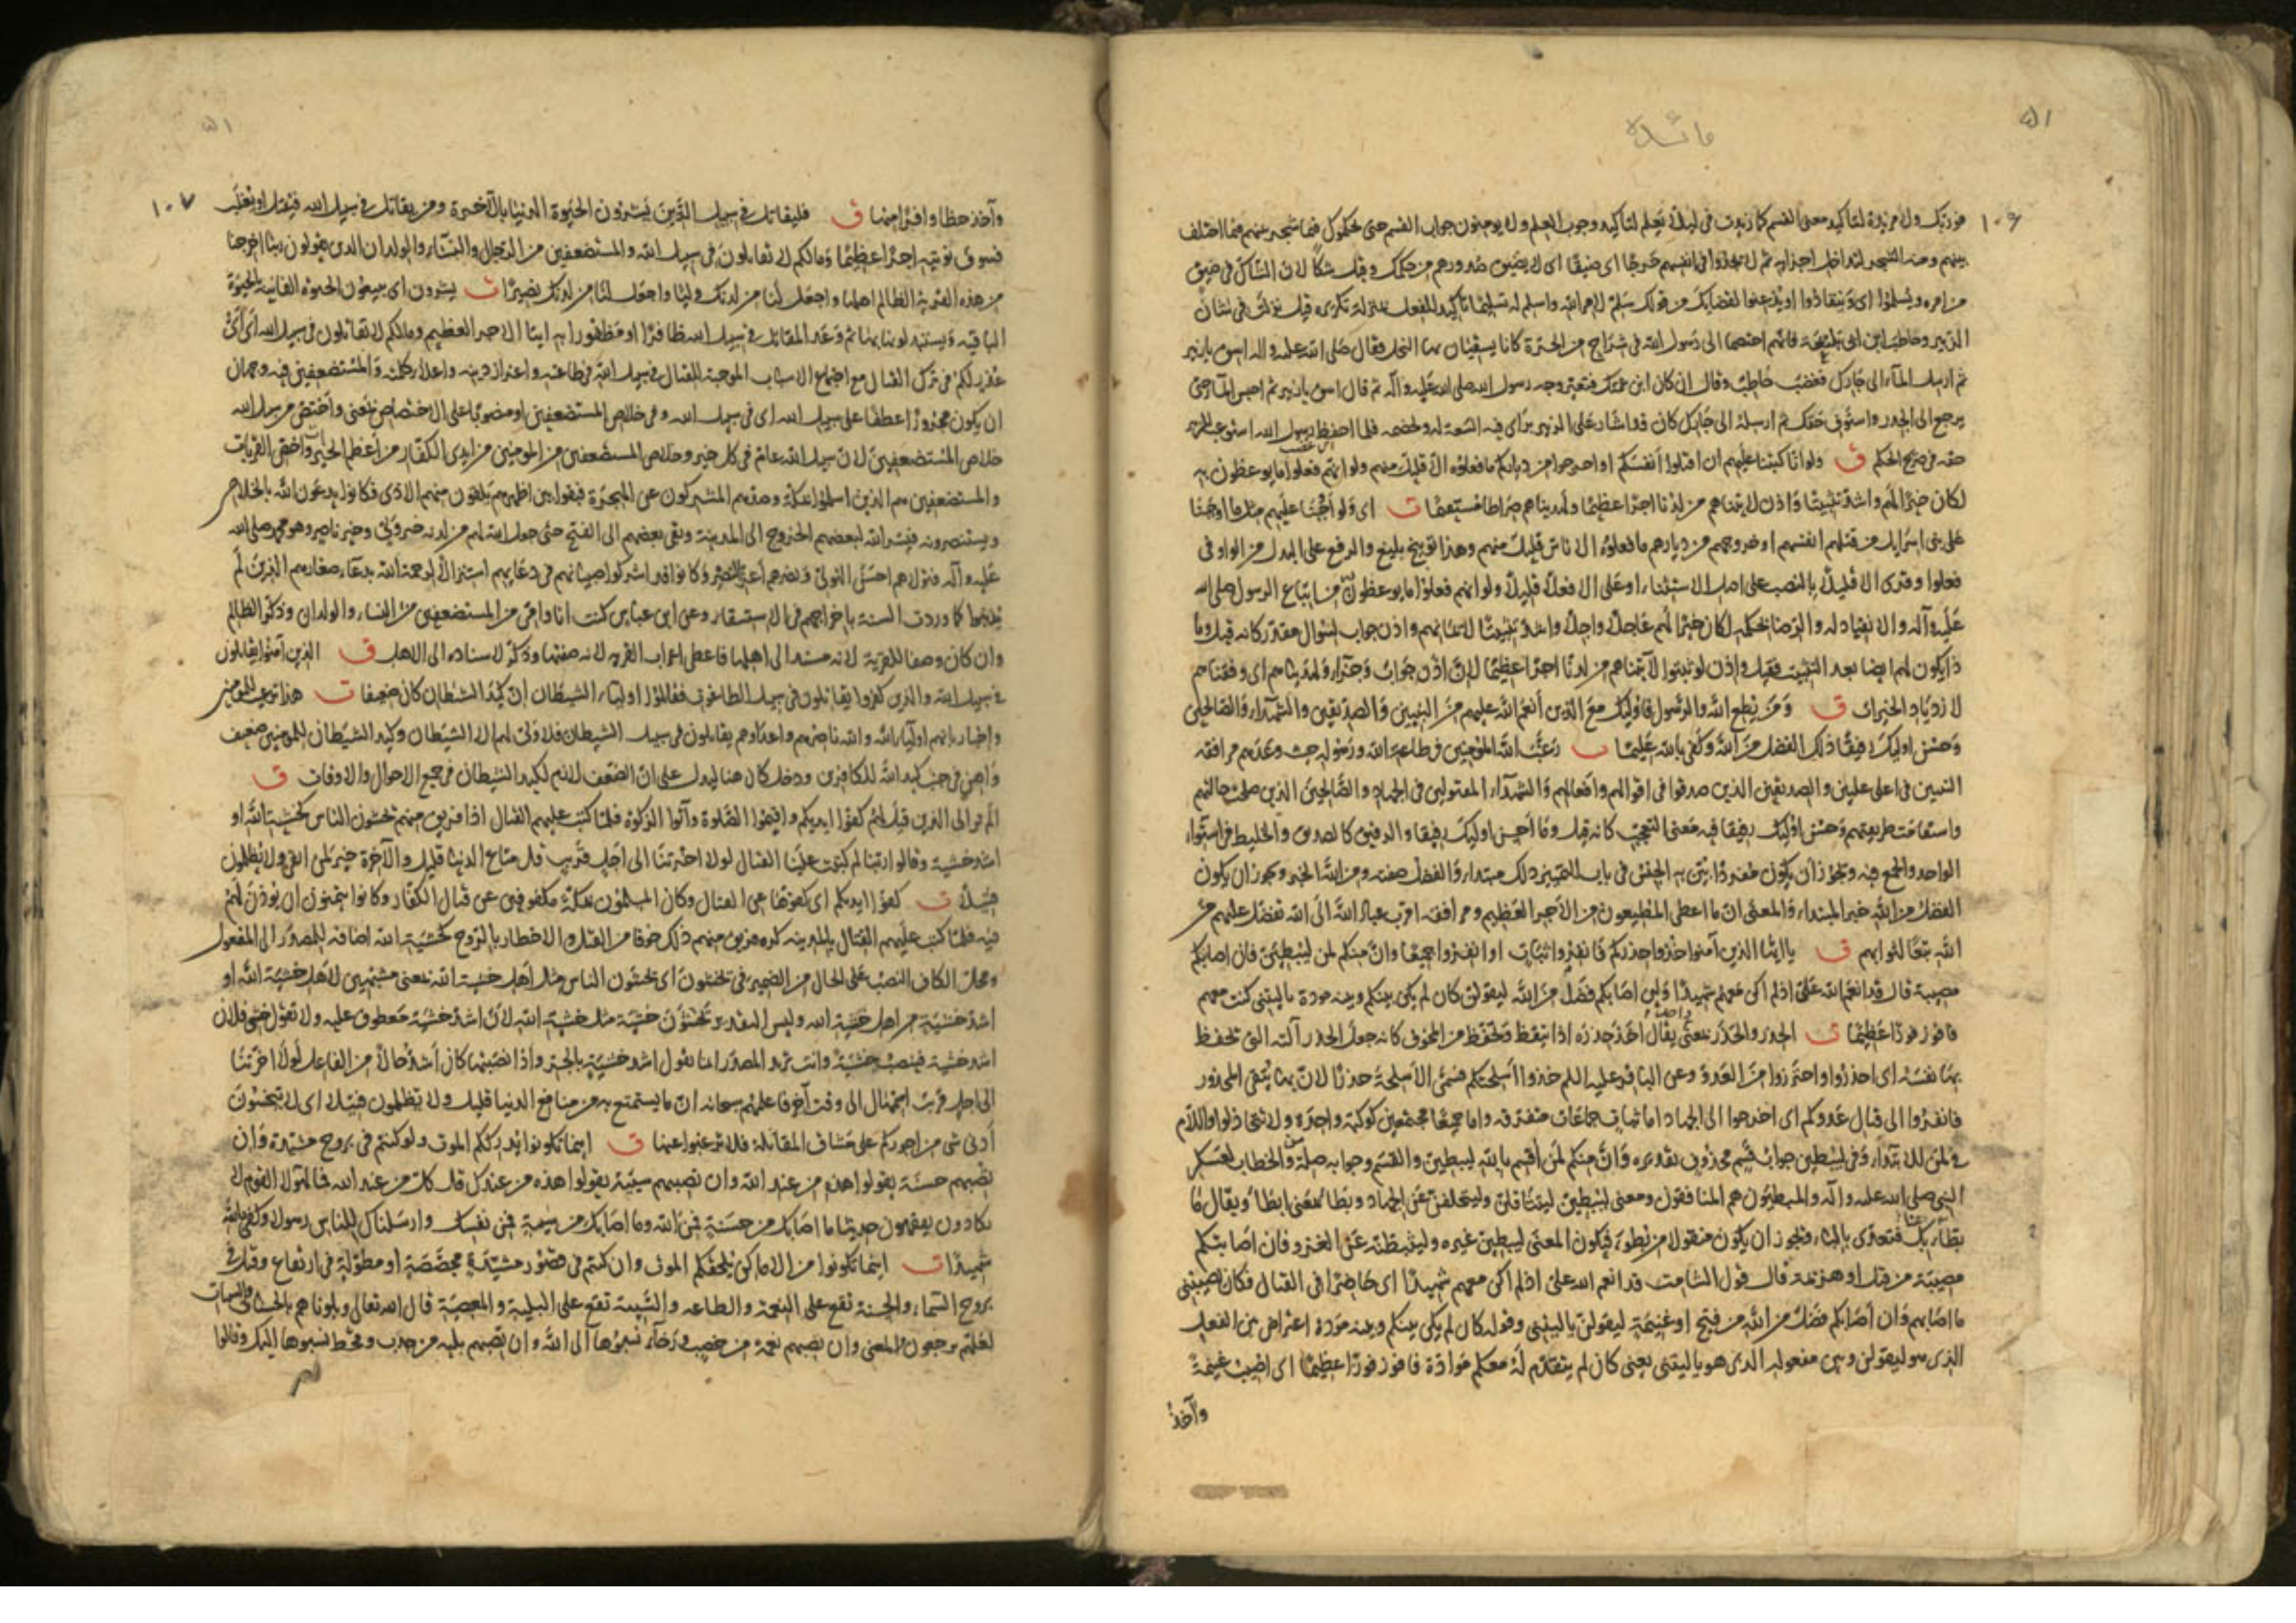 ٥١
مائدة
١٠٦
فوربك ولا مزيدة لتاكيد معنى القسم كما زيدت في لئلا يعلم لتاكيد وجوب العلم ولا يومنون جواب القسم حتى يحكموك فيما شجر بينهم فيما اختلف
بينهم ومنه الشجر لتداخل اغصانه ثم لا يجدوا في انفسهم حرجا اى ضيقا اى لا يضيق صدورهم من حكمك وقيل شكا لان الشاك في ضيق
من امره ويسلموا اى وينقادوا ويذعنوا لقضائك من قولك سلم لامر الله واسلم له تسليما تاكيد للفعل بمنزلة تكريره قيل نزلت في شان
الزبير وحاطب ابن ابى بلتعة فانهم اختصما الى رسول الله في شراج من الحرة كانا يسقيان بها النخل فقال صلى الله عليه واله اسق يا زبير
ثم ارسل الماء الى جارك فغضب حاطب وقال ان كان ابن عمتك فتغير وجه رسول الله صلى الله عليه وآله ثم قال اسق يا زبير ثم احبس الماء حتى
يرجع الى الجدر واستوف حقك ثم ارسله الى جارك كان قد اشار على الزبير براى فيه السعة له ولخصمه فلما احفظ رسول الله استوعب للزبير
حقه في صريح الحكم ق ولو انا كتبنا عليهم ان اقتلوا انفسكم او اخرجوا من دياركم ما فعلوه الا قليل منهم ولو انهم فعلوا ما يوعظون به
لكان خيرا لهم واشد تثبيتا واذن لاتيناهم من لدنا اجرا عظيما ولهديناهم صراطا مستقيما ت اى ولو اوجبنا عليهم مثل ما اوجبنا
على بنى اسرائيل من قتلهم انفسهم او خروجهم من ديارهم ما فعلوه الا ناس قليل منهم وهذا توبيخ بليغ والرفع على البدل من الواو في
فعلوا وقرى الا قليلا بالنصب على اصل الاستثناء او على الا فعلا قليلا ولو انهم فعلوا ما يوعظون به من اتباع الرسول صلى الله
عليه وآله والانقياد له والرضا بحكمه لكان خيرا لهم عاجلا وآجلا واشد تثبيتا لايمانهم واذن جواب لسوال مقدر كانه قيل وما
ذا يكون لهم ايضا بعد التثبيت فقيل واذن لو ثبتوا لآتيناهم من لدنا اجرا عظيما لان اذن جواب وجزاء ولهديناهم اى وفقناهم
لازدياد الخيرات ق ومن يطع الله والرسول فاولئك مع الذين انعم الله عليهم من النبيين والصديقين والشهداء والصالحين
وحسن اولئك رفيقا ذلك الفضل من الله وكفى بالله عليما ت رغب الله المومنين في طاعة الله ورسوله حيث وعدهم مرافقة
النبيين في اعلى عليين والصديقين الذين صدقوا في اقوالهم وافعالهم والشهداء المقتولين في الجهاد والصالحين الذين صلحت حالتهم
واستقامت طريقتهم وحسن اولئك رفيقا فيه معنى التعجب كانه قيل وما احسن اولئك رفيقا والرفيق كالصديق والخليط في استواء
الواحد والجمع فيه ويجوز ان يكون مفردا بين به الجنس في باب التمييز ذلك مبتداء والفضل صفته ومن الله الخبر ويجوز ان يكون
الفضل من الله خبر المبتداء والمعنى ان ما اعطى المطيعون من الاجر العظيم ومرافقة اقرب عباد الله الى الله تفضل عليهم من
الله تبعا لثوابهم ق يا ايها الذين آمنوا خذوا حذركم فانفروا ثبات او انفروا جميعا وان منكم لمن ليبطئن فان اصابتكم
مصيبة قال قد انعم الله على اذ لم اكن معهم شهيدا ولئن اصابكم فضل من الله ليقولن كان لم يكن بينكم وبينه مودة يا ليتنى كنت معهم
فافوز فوزا عظيما ت الحذر والحذر بمعنى يقال اخذ حذره اذا تيقظ وتحفظ من المخوف كانه جعل الحذر آلته التى يحفظ
بها نفسه اى احذروا واحترزوا من العدو وعن الباقر عليه السلم خذوا اسلحتكم فسمى الاسلحة حذرا لان بها يتقى المحذور
فانفروا الى قتال عدوكم اى اخرجوا الى الجهاد اما ثبات جماعات متفرقة واما جميعا مجتمعين كوكبة واحدة ولا تتخاذلوا واللام
في لمن للابتداء وفي ليبطئن جواب قسم محذوف تقديره وان منكم لمن اقسم بالله ليبطئن والقسم وجوابه صلة من والخطاب لعسكر
النبى صلى الله عليه وآله والمبطئون هم المنافقون ومعنى ليبطئن ليتثاقلن وليتخلفن عن الجهاد وبطا بمعنى ابطا ويقال ما
بطأ بك فيعدى بالباء ويجوز ان يكون منقولا من بطؤ فيكون المعنى ليبطئن غيره وليثبطنه عن الغزو فان اصابتكم
مصيبة من قتل او هزيمة قال قول الشامت قد انعم الله على اذ لم اكن معهم شهيدا اى حاضرا في القتال فكان يصيبنى
ما اصابهم وان اصابكم فضل من الله من فتح او غنيمة ليقولن يا ليتنى وقوله كان لم يكن بينكم وبينه مودة اعتراض بين الفعل
الذى هو ليقولن وبين مفعوله الذى هو يا ليتنى يعنى كان لم يتقدم له معكم موادة فافوز فوزا عظيما اى اصيب غنيمة
وآخذ
٥١
١٠٧
وآخذ حظا وافرا منها ق فليقاتل في سبيل الله الذين يشرون الحيوة الدنيا بالآخرة ومن يقاتل في سبيل الله فيقتل او يغلب
فسوف نوتيه اجرا عظيما ومالكم لا تقاتلون في سبيل الله والمستضعفين من الرجال والنساء والولدان الذين يقولون ربنا اخرجنا
من هذه القرية الظالم اهلها واجعل لنا من لدنك وليا واجعل لنا من لدنك نصيرا ت يشرون اى يبيعون الحيوة الفانية بالحيوة
الباقية ويستبدلونها بها ثم وعد المقاتل في سبيل الله ظافرا او مظفورا به ايتاء الاجر العظيم ومالكم لا تقاتلون في سبيل الله اى اى
عذر لكم في ترك القتال مع اجتماع الاسباب الموجبة للقتال في سبيل الله في طاعته واعزاز دينه واعلاء كلمته والمستضعفين فيه وجهان
ان يكون مجرورا عطفا على سبيل الله اى في سبيل الله وفي خلاص المستضعفين او منصوبا على الاختصاص يعنى واختص من سبيل الله
خلاص المستضعفين لان سبيل الله عام في كل خير وخلاص المستضعفين من المومنين من ايدى الكفار من اعظم الخير واخص القربات
والمستضعفين هم الذين اسلموا بمكة وصدهم المشركون عن الهجرة فبقوا بين اظهرهم يلقون منهم الاذى فكانوا يدعون الله بالخلاص
ويستنصرونه فيسر الله لبعضهم الخروج الى المدينة وبقى بعضهم الى الفتح حتى جعل الله لهم من لدنه خير ولى وخير ناصر وهو محمد صلى الله
عليه وآله فتولاهم احسن التولى ونصرهم اعز النصر وكانوا قد اشركوا صبيانهم في دعائهم استنزالا لرحمة الله بدعاء صغارهم الذين لم
يذنبوا كما وردت السنة باخراجهم في الاستسقاء وعن ابن عباس كنت انا وامى من المستضعفين من النساء والولدان وذكر الظالم
وان كان وصفا للقرية لانه مسند الى اهلها فاعطى اعراب القرية لانه صفتها وذكر لاسناده الى الاهل ق الذين آمنوا يقاتلون
في سبيل الله والذين كفروا يقاتلون في سبيل الطاغوت فقاتلوا اولياء الشيطان ان كيد الشيطان كان ضعيفا ت هذا ترغيب للمومنين
واخبار بانهم اولياء الله والله ناصرهم واعداوهم يقاتلون في سبيل الشيطان فلا ولى لهم الا الشيطان وكيد الشيطان للمومنين ضعيف
واهن في جنب كيد الله للكافرين ودخل كان هنا ليدل على ان الضعف لازم لكيد الشيطان في جميع الاحوال والاوقات ق
الم تر الى الذين قيل لهم كفوا ايديكم واقيموا الصلوة وآتوا الزكوة فلما كتب عليهم القتال اذا فريق منهم يخشون الناس كخشية الله او
اشد خشية وقالوا ربنا لم كتبت علينا القتال لولا اخرتنا الى اجل قريب قل متاع الدنيا قليل والآخرة خير لمن اتقى ولا يظلمون
فتيلا ت كفوا ايديكم اى كفوها عن القتال وكان المسلمون بمكة مكفوفين عن قتال الكفار وكانوا يتمنون ان يوذن لهم
فيه فلما كتب عليهم القتال بالمدينة كره فريق منهم ذلك خوفا من القتل والاخطار بالروح كخشية الله اضافة المصدر الى المفعول
ومحل الكاف النصب على الحال من الضمير في يخشون اى يخشون الناس مثل اهل خشية الله بمعنى مشبهين لاهل خشية الله او
اشد خشية من اهل خشية الله وليس التقدير يخشون خشية مثل خشية الله لان اشد خشية معطوف عليه ولا تقول خشى فلان
اشد خشية فينصب خشية وانت تريد المصدر انما تقول اشد خشية بالجر واذا نصبتها كان اشد حالا من الفاعل لولا اخرتنا
الى اجل قريب استمهال الى وقت آخر فاعلمهم سبحانه ان ما يستمتع به من منافع الدنيا قليل ولا يظلمون فتيلا اى لا تبخسون
ادنى شى من اجوركم على مشاق المقاتلة فلا ترغبوا عنها ق اينما تكونوا يدرككم الموت ولو كنتم في بروج مشيدة وان
تصبهم حسنة يقولوا هذه من عند الله وان تصبهم سيئة يقولوا هذه من عندك قل كل من عند الله فما لهؤلاء القوم لا
يكادون يفقهون حديثا ما اصابك من حسنة فمن الله وما اصابك من سيئة فمن نفسك وارسلناك للناس رسولا وكفى بالله
شهيدا ت اينما تكونوا من الاماكن يلحقكم الموت وان كنتم في قصور مشيدة مجصصة او مطولة في ارتفاع وقيل في
بروج السماء والحسنة تقع على النعمة والطاعة والسيئة تقع على البلية والمعصية قال الله تعالى وبلوناهم بالحسنات والسيئات
لعلهم يرجعون والمعنى وان تصبهم نعمة من خصب ورخاء نسبوها الى الله وان تصبهم بلية من جدب وقحط نسبوها اليك وقالوا